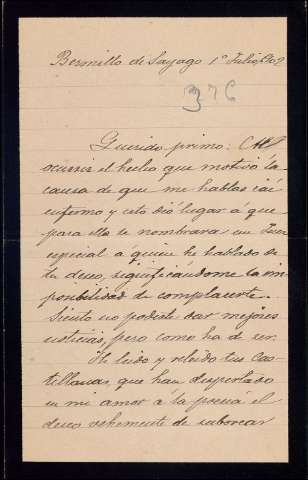 Bermillo de Sayago 1º Julio, 902
376
Querido primo: Al
ocurrir el hecho que motivó la
causa de que me hablas caí
enfermo y esto dió lugar á que
para ella se nombrara un Juez
especial á quien he hablado de
tu deseo, significandome la im-
posibilidad de complacerte.
Siento no poderte dar mejores
noticias, pero como ha de ser.
He leido y releido tus Cas-
tellanas, que han despertado
en mi amor á la poesía el
deseo vehemente de saborear